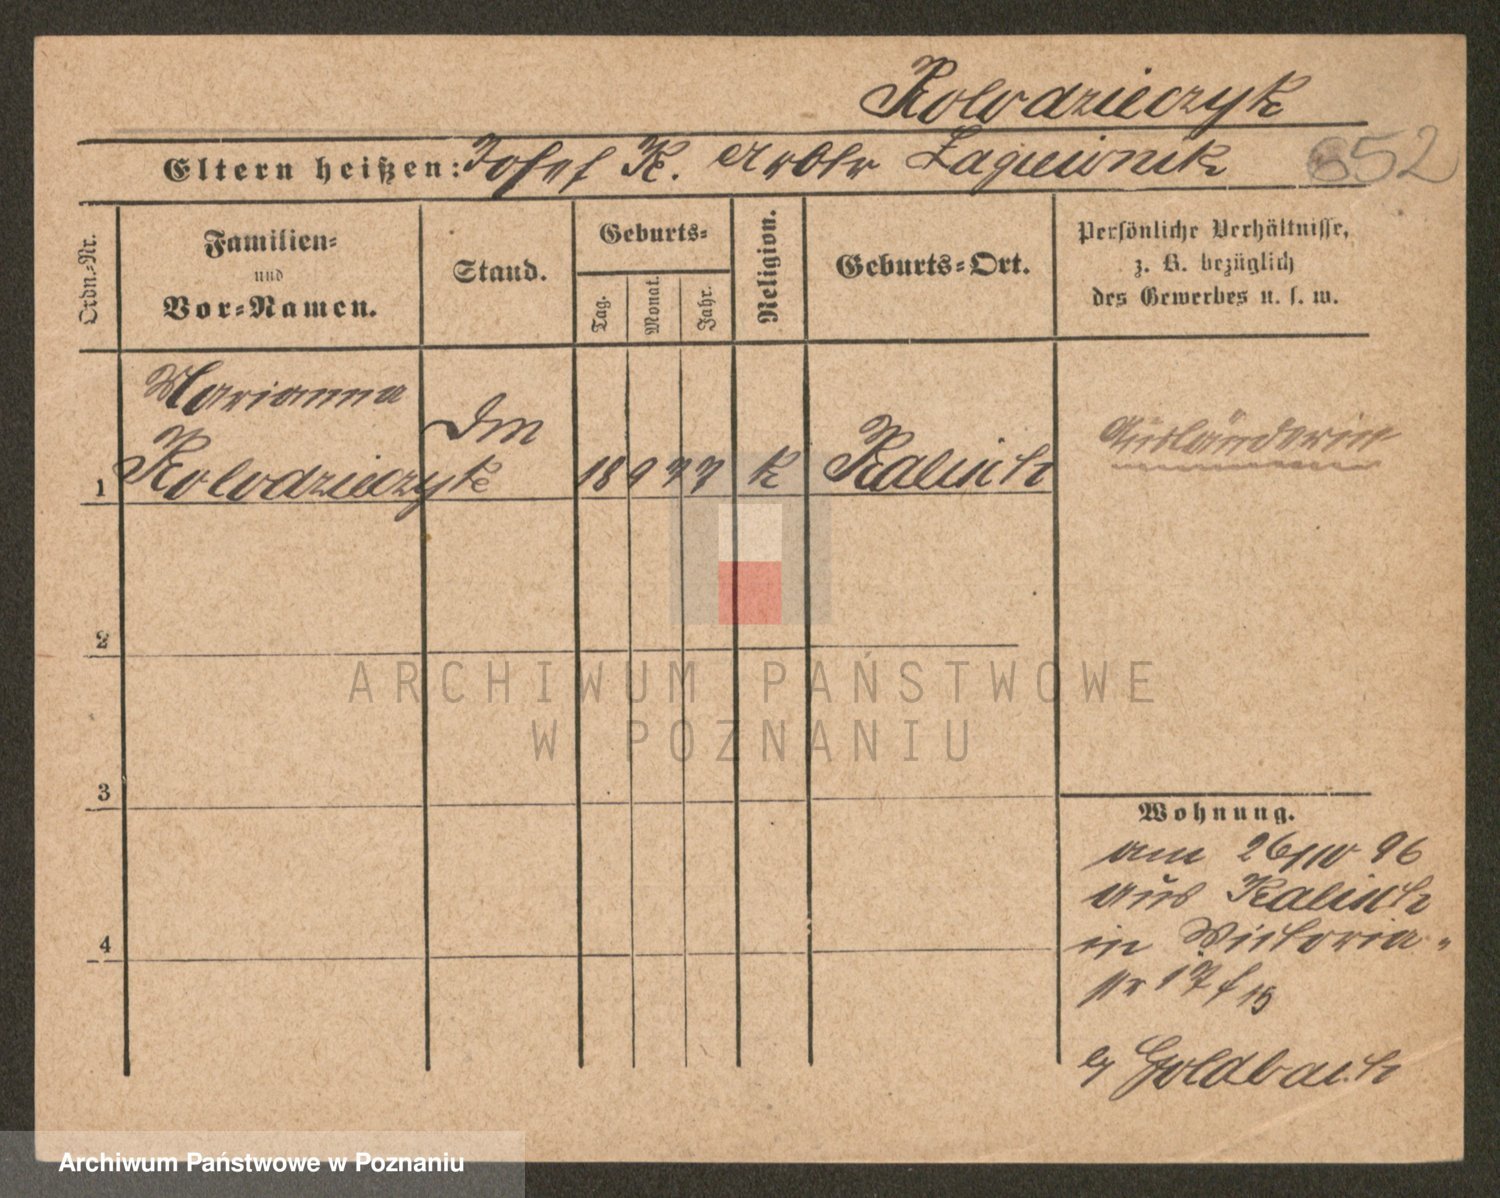 Kolodzieczyk
Eltern heißen: Josef K. Arbtr Lagiewnik 652
Ordn.-Nr.
Familien-
und
Vor-Namen.
Stand.
Geburts-
Tag.
Monat.
Jahr.
Religion.
Geburts-Ort.
Persönliche Verhältnisse,
z. B. bezüglich
des Gewerbes u. s. w.
Marianna
1 Kolodzieczyk Dm 18 9 77 k Kalisch
Ausländerin
2
3
4
ARCHIWUM PAŃSTWOWE
W POZNANIU
Wohnung.
am 26/10 96
aus Kalisch
in Victoria-
str 17
b/ Goldbach
Archiwum Państwowe w Poznaniu